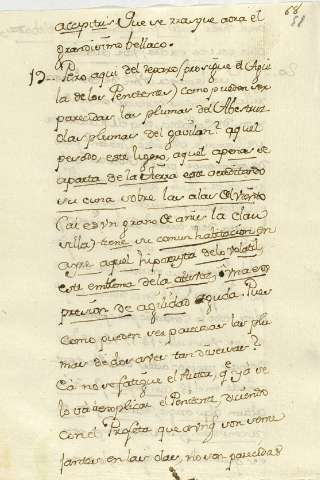 68
51
accipitris. Que se rrasque aora el
grandissimo bellaco.
12 Pero aqui del reparo (prosigue el Agui
la de los Penitentes) como pueden ser
parecidas las plumas del Abestruz
a las plumas del gavilan? aquel
pesado, este ligero, aquel apenas se
aparta de la tierra este acreditando
su curia sobre las alas del viento
(ai es un grano de anis la clau
silla) tiene su comun habitacion en
ayre aquel de lo volatil,
este emblema de la altivez, o ma ex
presion de agilidad aguda. Pues
como pueden ser parecidas las plu
mas de dos aves tan diversas?
Ca no se fatigue el q̃ ya se
lo va à explicar el Penitente, diciendo
con el Profeta que aunq̃ son seme
jantes en las alas, no son parecidas